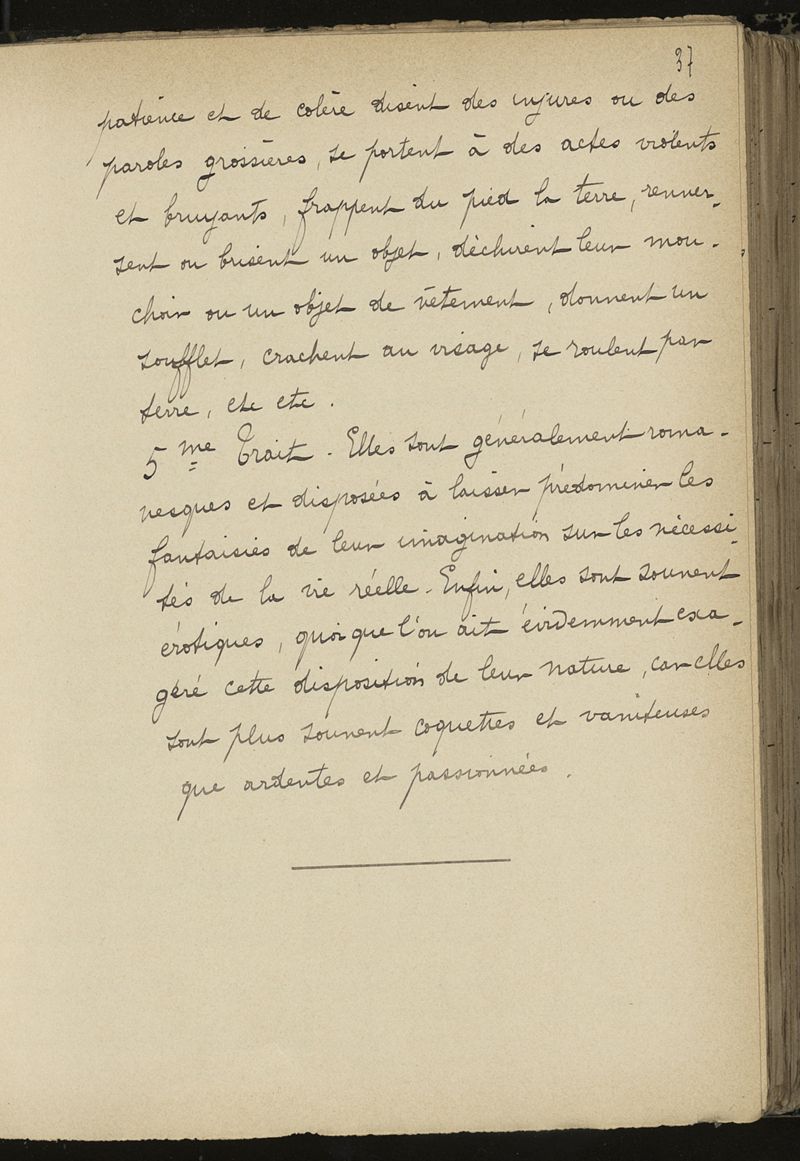 37
patience et de colère disent des injures ou des
paroles grossières, se portent à des actes violents
et bruyants, frappent du pied la terre, renver-
sent ou brisent un objet, déchirent leur mou-
choir ou un objet de vêtement, donnent un
soufflet, crachent au visage, se roulent par
terre, etc etc.
5me Trait - Elles sont généralement roma-
nesques et disposées à laisser prédominer les
fantaisies de leur imagination sur les nécessi-
tés de la vie réelle - Enfin, elles sont souvent
érotiques, quoique l'on ait évidemment exa-
géré cette disposition de leur nature, car elles
sont plus souvent coquettes et vaniteuses
que ardentes et passionnées.